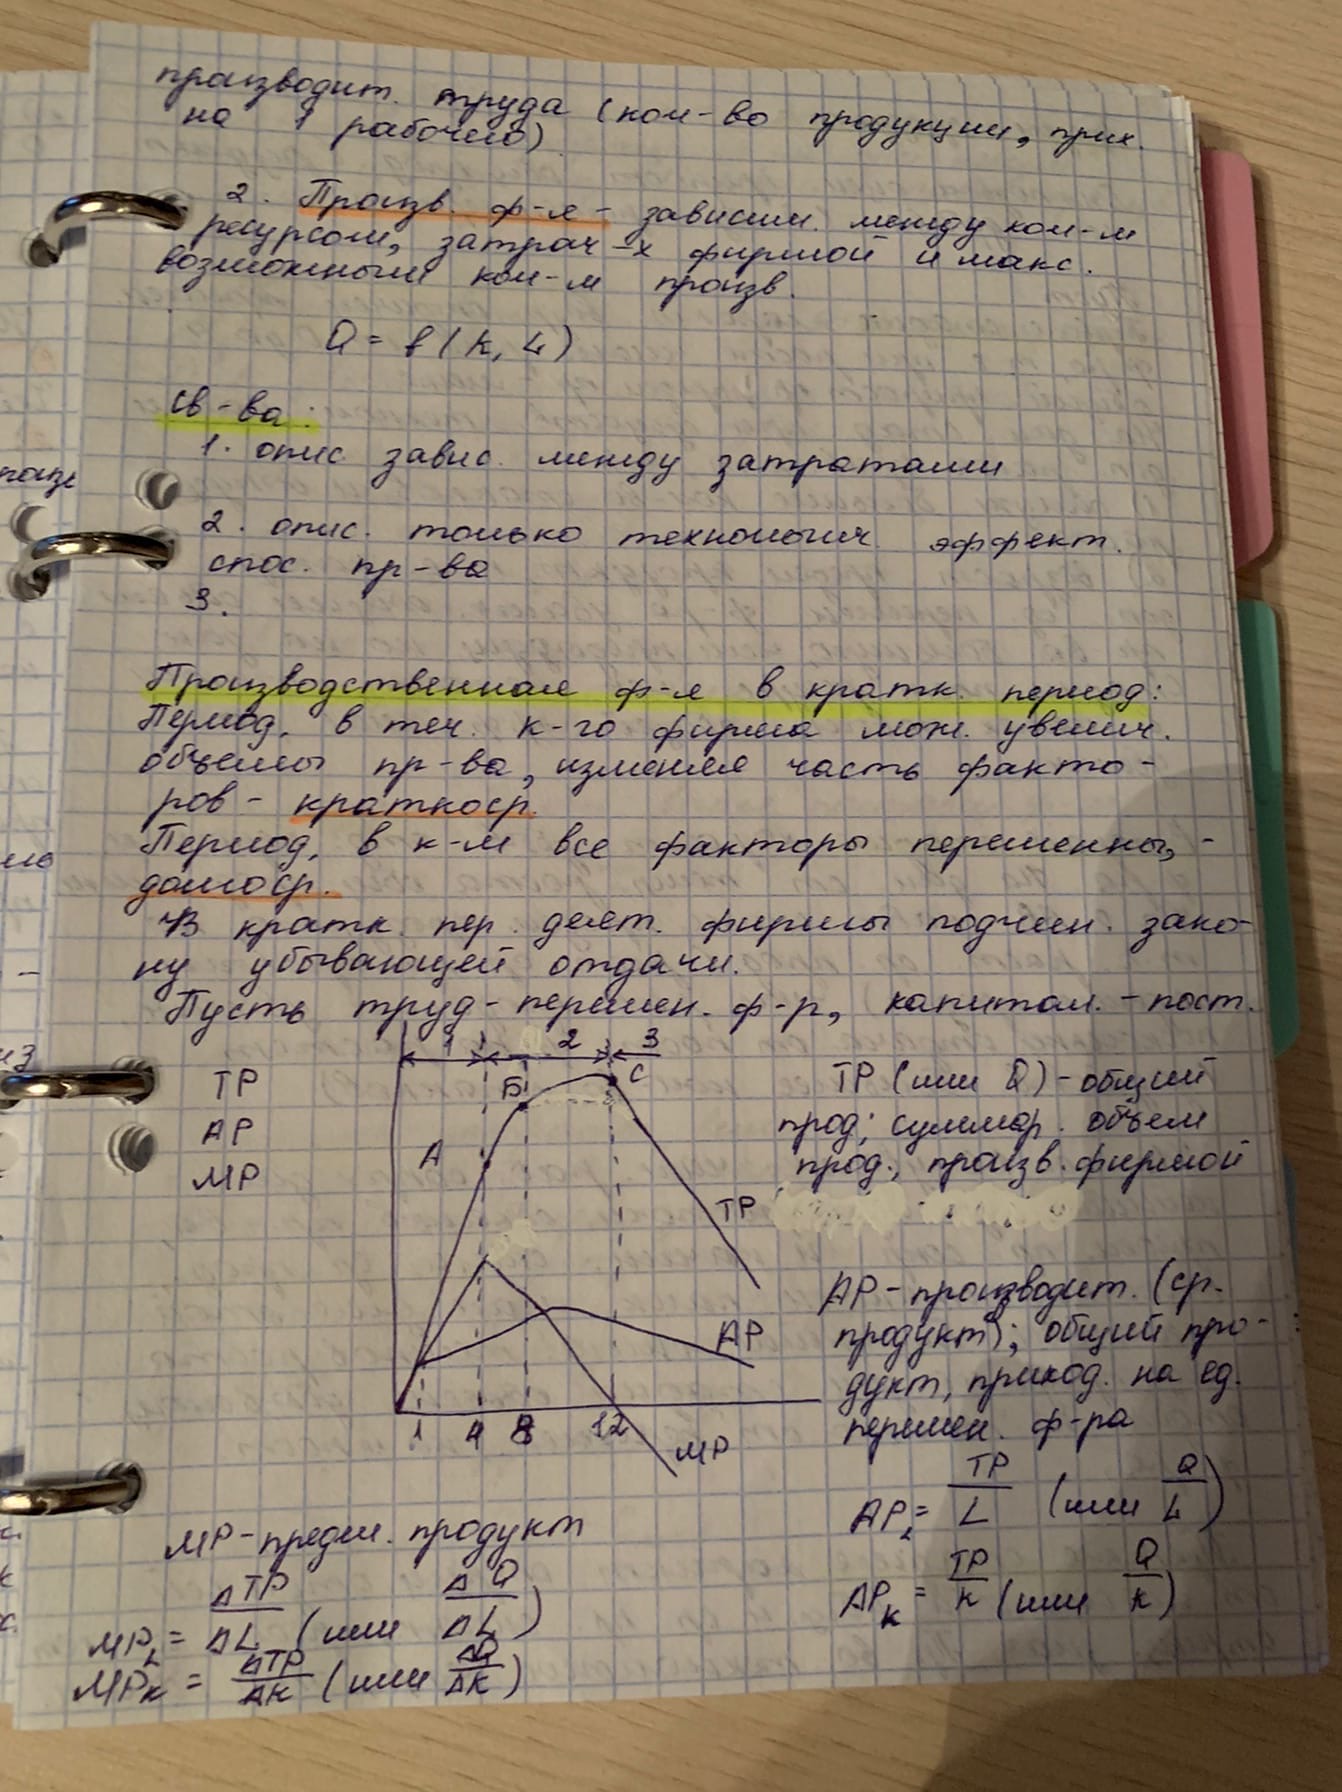 производит. труда (кол-во продукции, прих.
на 1 рабочего)
2. Произв. ф-я - зависим. между кол-м
ресурсом, затрач-х фирмой и макс.
возможным кол-м произв.
Q = f (K, L)
Св-ва:
1. опис завис. между затратами
2. опис. только технологич. эффект.
спос. пр-ва
3.
Производственная ф-я в кратк. период:
Период, в теч. к-го фирма мож. увелич.
объемы пр-ва, изменяя часть факто-
ров - краткоср.
Период, в к-м все факторы переменны, -
долгоср.
В кратк. пер. деят. фирмы подчин. зако-
ну убывающей отдачи.
Пусть труд - перемен. ф-р, капитал. - пост.
1 2 3
TP
AP
MP
А Б С
TP
AP
MP
1 4 8 12
TP (или Q) - общий
прод; суммар. объем
прод., произв. фирмой
AP - производит. (ср.
продукт); общий про-
дукт, приход. на ед.
перемен. ф-ра
AP_L = TP/L (или Q/L)
AP_K = TP/K (или Q/K)
MP - предел. продукт
MP_L = ΔTP/ΔL (или ΔQ/ΔL)
MP_K = ΔTP/ΔK (или ΔQ/ΔK)